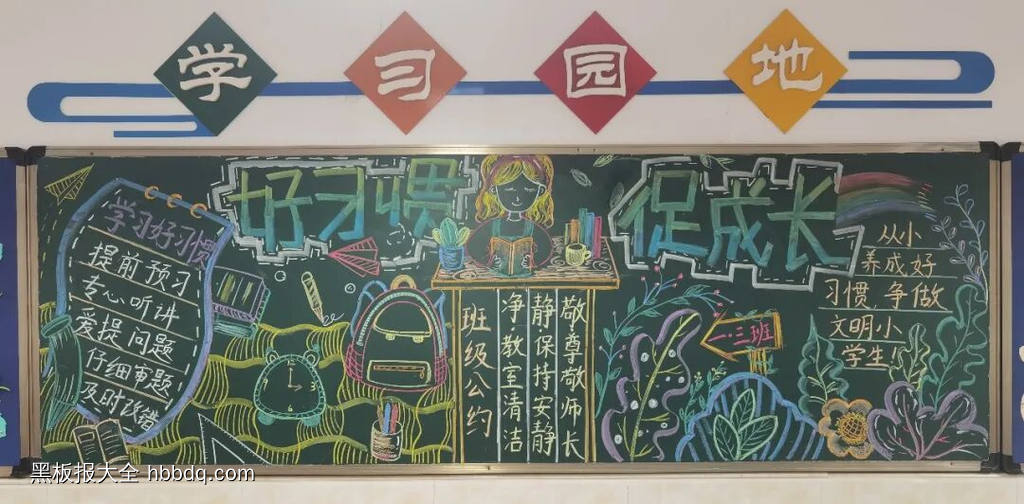 学习园地
好习惯
促成长
学习好习惯
提前预习
专心听讲
爱提问题
仔细审题
及时改错
班级公约
净·教室清洁
静·保持安静
敬·尊敬师长
一.三班
从小
养成好
习惯,争做
文明小
学生!
黑板报大全 hbbdq.com